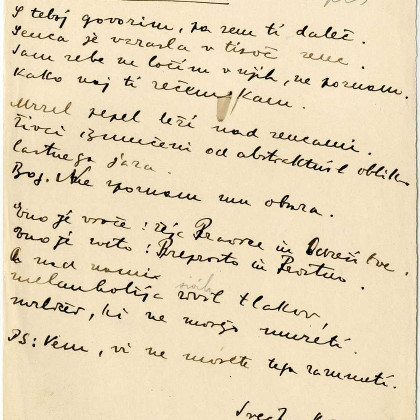 S teboj govorim, pa sem ti daleč.
Senca je vzrasla v tisoč senc.
Sam sebe ne ločim v njih, ne poznam.
Kako naj ti rečem kam.
Mrzel pepel leži nad sencami.
Živci izmučeni od abstraktnih oblik
lastnega jaza.
Bog. Ne poznam mu obraza.
Eno je vroče: in
Eno je sveto: Preprosto in
A nad nami
melanholija vseh tlakov,
ki ne morejo umreti.
PS: Vem, vi ne morete tega razumeti.